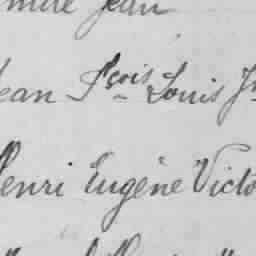 Jean
Jean Fçois Louis
Henri Eugène Victo